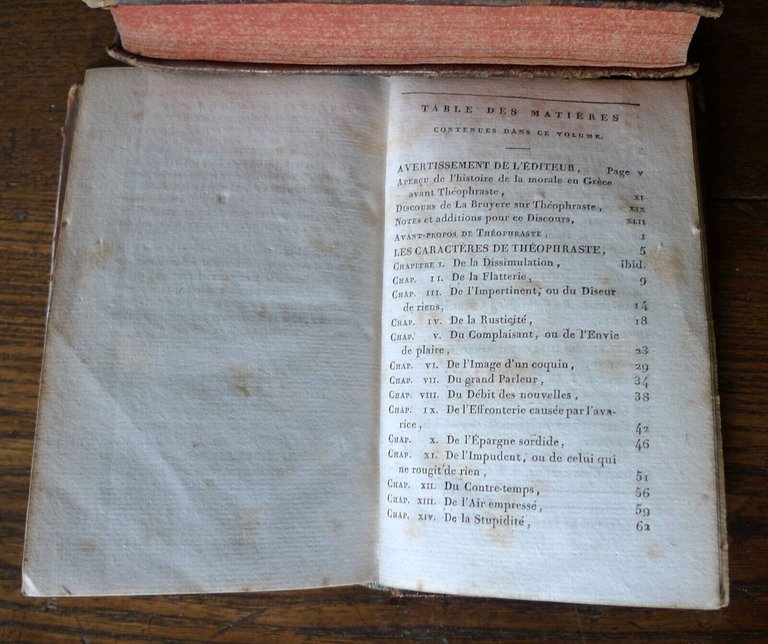 TABLE DES MATIÈRES
CONTENUES DANS CE VOLUME.
AVERTISSEMENT DE L'ÉDITEUR, Page v
APERÇU de l'histoire de la morale en Grèce
avant Théophraste, xi
DISCOURS de La Bruyere sur Théophraste, xix
NOTES et additions pour ce Discours, XLII
AVANT-PROPOS DE THÉOPHRASTE, 1
LES CARACTÈRES DE THÉOPHRASTE, 5
CHAPITRE I. De la Dissimulation, ibid.
CHAP. II. De la Flatterie, 9
CHAP. III. De l'Impertinent, ou du Diseur
de riens, 14
CHAP. IV. De la Rusticité, 18
CHAP. V. Du Complaisant, ou de l'Envie
de plaire, 23
CHAP. VI. De l'Image d'un coquin, 29
CHAP. VII. Du grand Parleur, 34
CHAP. VIII. Du Débit des nouvelles, 38
CHAP. IX. De l'Effronterie causée par l'ava-
rice, 42
CHAP. X. De l'Épargne sordide, 46
CHAP. XI. De l'Impudent, ou de celui qui
ne rougit de rien, 51
CHAP. XII. Du Contre-temps, 56
CHAP. XIII. De l'Air empressé, 59
CHAP. XIV. De la Stupidité, 62